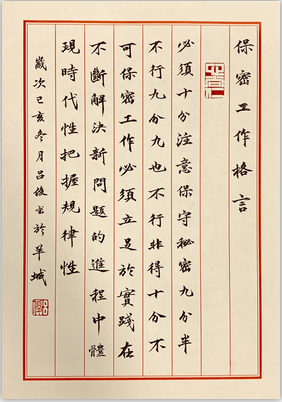 保密工作格言
必須十分注意保守秘密九分半
不行九分九也不行非得十分不
可保密工作必須立足於實踐在
不斷解決新問題的進程中體
現時代性把握規律性
歲次己亥冬月呂俊書於羊城